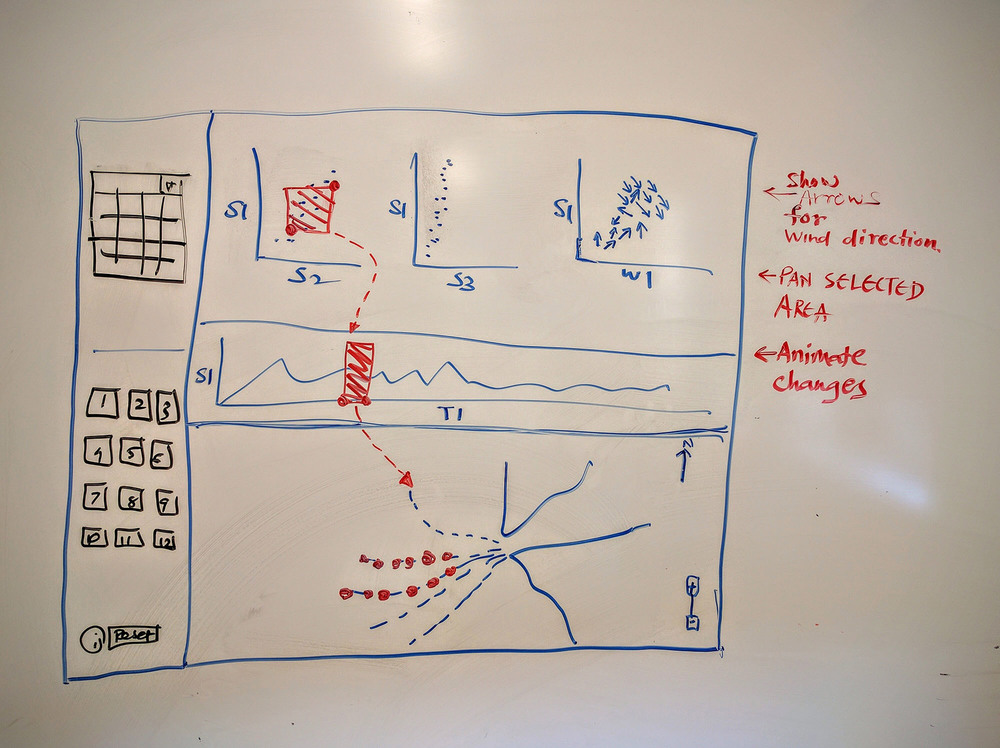 S1
S2
S1
S3
S1
W1
S1
T1
N
1 2 3
4 5 6
7 8 9
10 11 12
i Reset
+
-
← Show
Arrows
for
Wind direction.
← PAN SELECTED
AREA
← Animate
changes